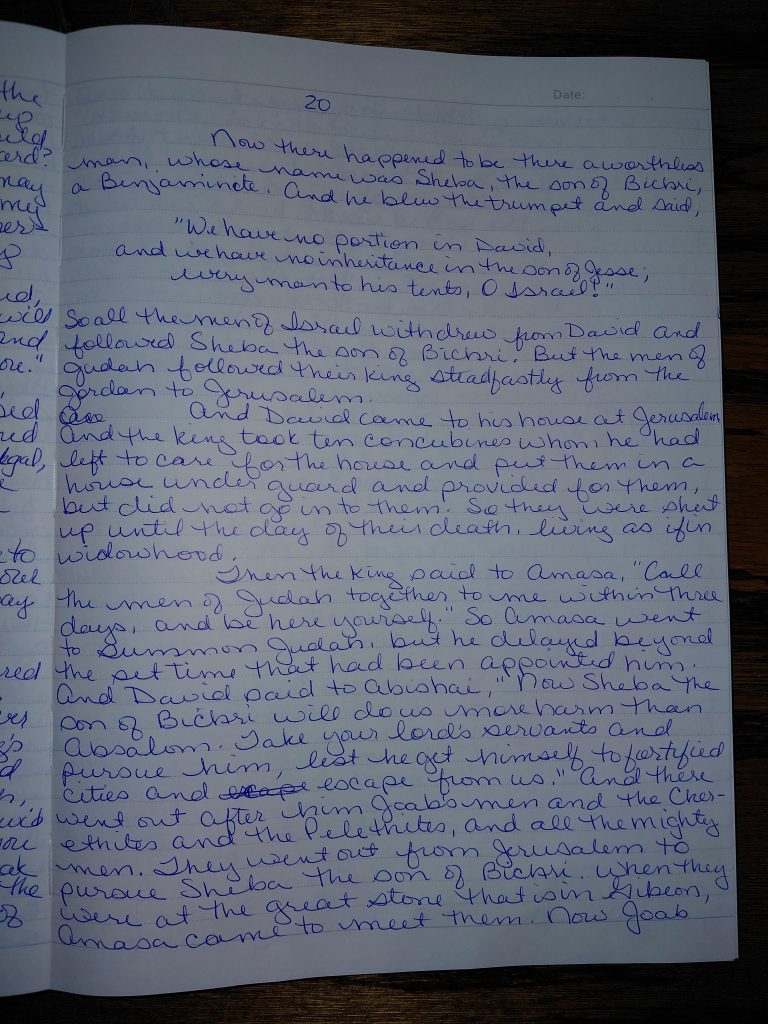 the
up
uld
ard?
may
my
vers
ud,
will
and
ore."
sed
red
lgal,
e
to
our
ay
red
ver
g's
d
h,
vid
you
ak
the
of
20
Date:
Now there happened to be there a worthless
man, whose name was Sheba, the son of Bichri,
a Benjaminite. And he blew the trumpet and said,
"We have no portion in David,
and we have no inheritance in the son of Jesse;
every man to his tents, O Israel!"
So all the men of Israel withdrew from David and
followed Sheba the son of Bichri. But the men of
Judah followed their king steadfastly from the
Jordan to Jerusalem.
And David came to his house at Jerusalem
And the king took ten concubines whom he had
left to care for the house and put them in a
house under guard and provided for them,
but did not go in to them. So they were shut
up until the day of their death, living as if in
widowhood.
Then the king said to Amasa, "Call
the men of Judah together to me within three
days, and be here yourself." So Amasa went
to summon Judah, but he delayed beyond
the set time that had been appointed him.
And David said to Abishai, "Now Sheba the
son of Bichri will do us more harm than
Absalom. Take your lord's servants and
pursue him, lest he get himself to fortified
cities and escape escape from us." And there
went out after him Joab's men and the Cher-
ethites and the Pelethites, and all the mighty
men. They went out from Jerusalem to
pursue Sheba the son of Bichri. When they
were at the great stone that is in Gibeon,
Amasa came to meet them. Now Joab